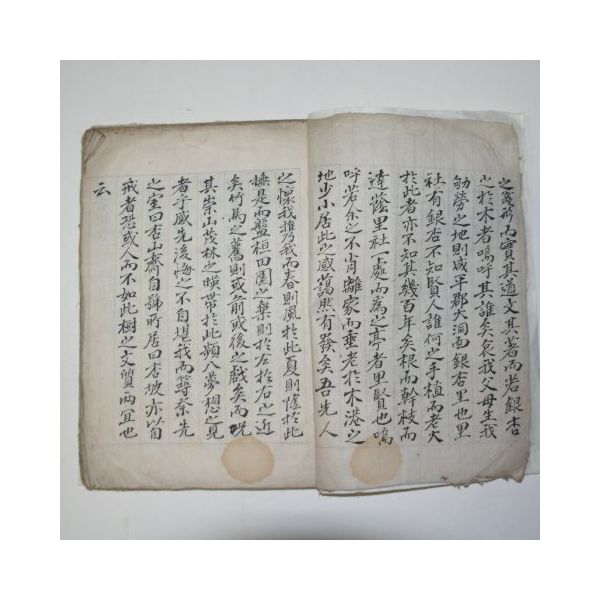 之茂於而實其道文其著而若銀杏
之於木者嗚呼其誰矣哀我父母生我
劬勞之地則咸平郡大洞面銀杏里也里
社有銀杏不知賢人誰何之手植而老大
於此者亦不知其幾百年矣根而幹枝而
達蔭里社一處而爲之亭者里賢也嗚
呼若余之不肖離家而垂老於木港之
地少小居此之感藹然有發矣吾先人
之懷我携我而春則風於此夏則陰於此
撫是而盤桓田園之樂則於右於右之近
矣竹馬之舊則或前或後之戱矣而況
其崇山茂林之暎帶於此頻入夢想之見
者乎感先後悔之不自堪我而尊奈先
之室曰杏山齋自號所居曰杏坡亦以自
戒者恐或人而不如此樹之文質兩宜也
云